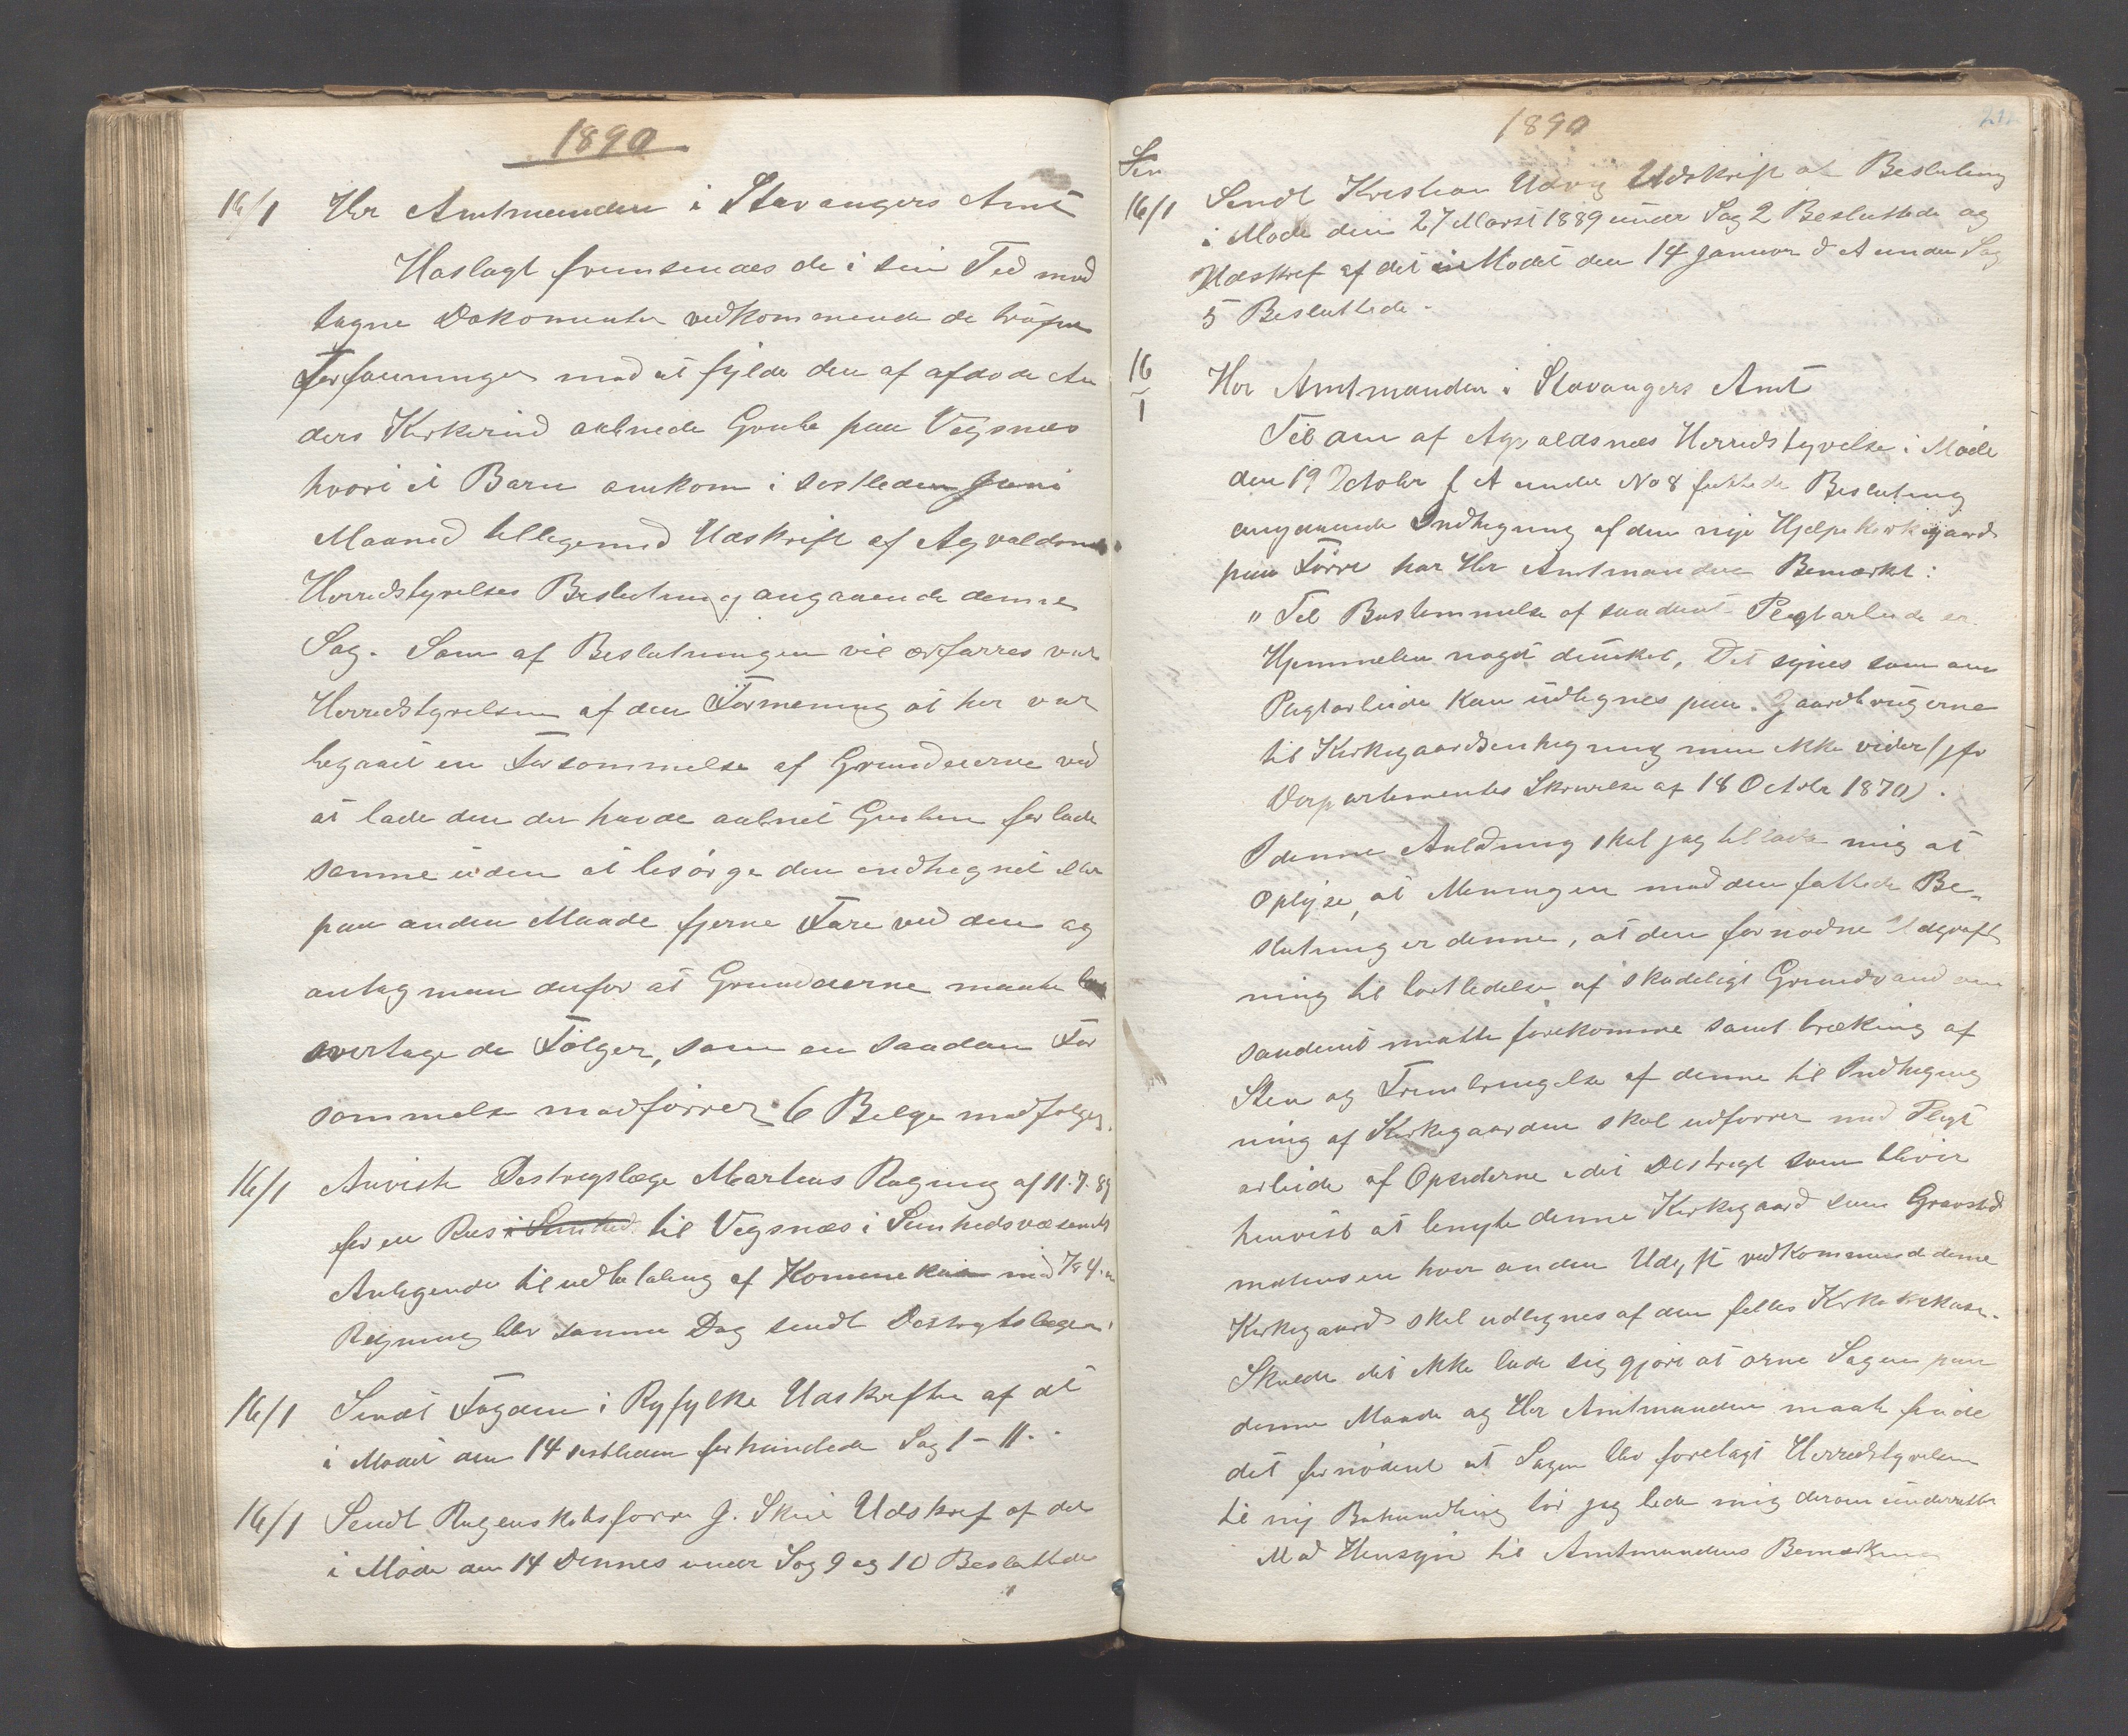 1890
16/1 Hr Amtmanden i Stavangers Amt
Haslagt fremsendes de i sin Tid mod
tagne Dokomenter vedkommende de trufne
Forfauninger med at fylde den af afdøde An
ders Kirkerud aabnede Grube paa Vigsnæs
hvori et Barn omkom i sistleden Juni
Maaned tillegemed Udskrift af Agvaldsnes
Herredstyrelses Beslutning angaaende denne
Sag. Som af Beslutningen vil erfarres var
Herredstyrelsen af den Formening at her var
begaaet en Forsommelse af Grundeierne ved
at lade den der havde aabnet Gruben forlade
samme uden at besørge den indhegnet eller
paa anden Maade fjerne Fare ved den og
antag man derfor at Grundeierne maate
overtage de Følger, som en saadan For
sommelse medførrer. 6 Belge medfølger.
16/1 Anviste Destrigtslæge Martens Regning af 11.7.89
for en Reis i Sunhed til Vigsnæs i Sunhedsvæsenets
Anligende til udbetaling af Komunekassen med
Regning blev samme Dag sendt Destrigtslægen
16/1 Sendt Fogden i Ryfylke Udskrifter af de
i Mødet den 14 sistleden forhandlede Sag 1-11.
16/1 Sendt Regenskabsforer J. Skeie Udskrif af det
i Møde den 14 Dennes under Sag 9 og 10 Besluttede
1890
Sen
16/1 Sendt Kristian Udvig Udskrift af Beslutning
i Møde den 27 Marst 1889 under Sag 2 Besluttede og
Udskrif af det i Mødet den 14 Januar d A under Sag
5 Besluttede.
16/1 Hr Amtmanden i Stavangers Amt
Til den af Agvaldsnæs Herredstyrelse i Møde
den 19 Octobr f A under No 8 fattede Beslutning
angaaende Indhegning af den nye Hjelpekirkegaard
paa Førre har Hr Amtmanden Bemærket:
" Til Bestemmelse af saadant Pligtarbeide er
Hjemmelen noget dunkel, Det synes som om
Pligtarbeide kan udlignes paa Gaardbrugerne
til Kirkegaardsenhegning men ikke vider (jfr
Departementes Skrivelse af 18 Octobr 1870).
I denne Anledning skal jeg tillade mig at
Oplyse, at Meningen med den fattede Be-
slutning er denne, at den fornødne Udgrøft
ning til bortledelse af skadeligt Grundvand om
saadant matte forekomme samt bræking af
Sten og Frembringelse af denne til Indhegning
ning af Kirkegaarden skal udførrer med Pligt
arbeide af Opsiderne i det Destrigt som bliver
henvist at benytte denne Kirkegaard som Gravsted
medens en hver anden Udgift vedkommende denne
Kirkegaard skal udlignes af den felles Kirkekasse.
Skulde det ikke lade sig gjøre at orne Sagen paa
denne Maade og Hr Amtmanden maate finde
det fornødent at Sagen blev forelagt Herredstyrelsen
til ny Behandling bør jeg bede mig derom underrettet
Med Hensyn til Amtmandens Bemærkning